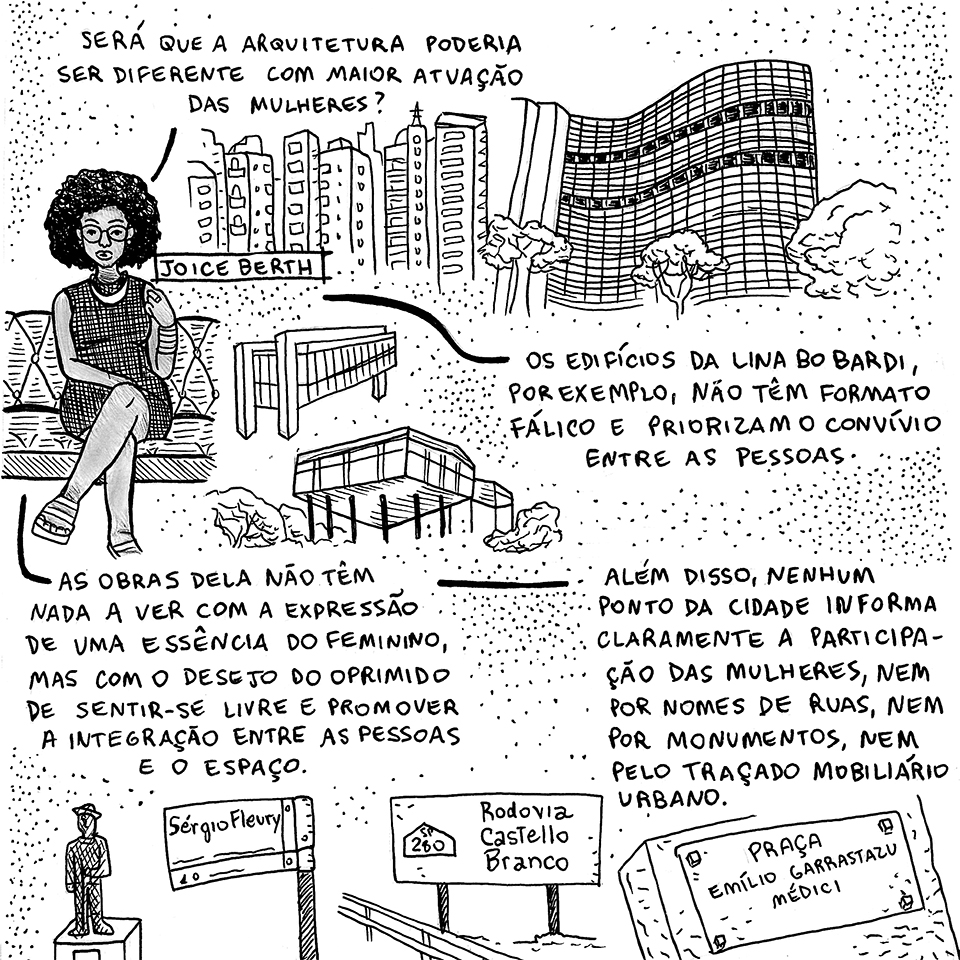 SERÁ QUE A ARQUITETURA PODERIA
SER DIFERENTE COM MAIOR ATUAÇÃO
DAS MULHERES?
JOICE BERTH
OS EDIFÍCIOS DA LINA BO BARDI,
POR EXEMPLO, NÃO TÊM FORMATO
FÁLICO E PRIORIZAM O CONVÍVIO
ENTRE AS PESSOAS.
AS OBRAS DELA NÃO TÊM
NADA A VER COM A EXPRESSÃO
DE UMA ESSÊNCIA DO FEMININO,
MAS COM O DESEJO DO OPRIMIDO
DE SENTIR-SE LIVRE E PROMOVER
A INTEGRAÇÃO ENTRE AS PESSOAS
E O ESPAÇO.
ALÉM DISSO, NENHUM
PONTO DA CIDADE INFORMA
CLARAMENTE A PARTICIPA-
ÇÃO DAS MULHERES, NEM
POR NOMES DE RUAS, NEM
POR MONUMENTOS, NEM
PELO TRAÇADO MOBILIÁRIO
URBANO.
Sérgio Fleury
SP
280
Rodovia
Castello
Branco
PRAÇA
EMÍLIO GARRASTAZU
MÉDICI